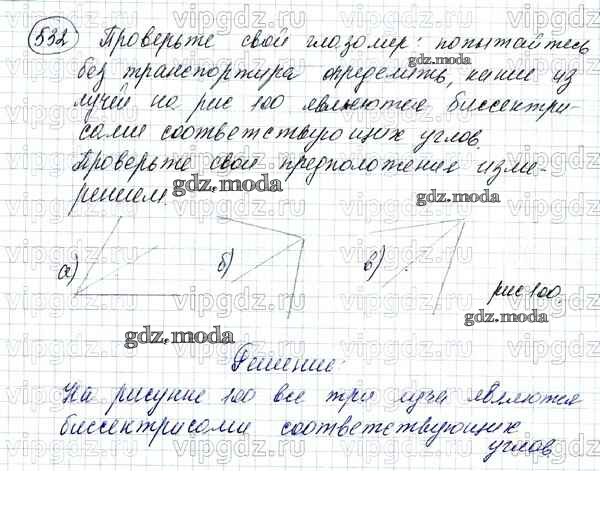 532 Проверьте свой глазомер: попытайтесь
без транспортира определить, какие из
лучей на рис 100 являются биссектри-
сами соответствующих углов.
Проверьте свои предположения изме-
рением.
а) б) в)
рис 100.
Решение:
На рисунке 100 все три луча являются
биссектрисами соответствующих
углов
gdz.moda
gdz.moda
gdz.moda
gdz.moda
gdz.moda
vipgdz.ru